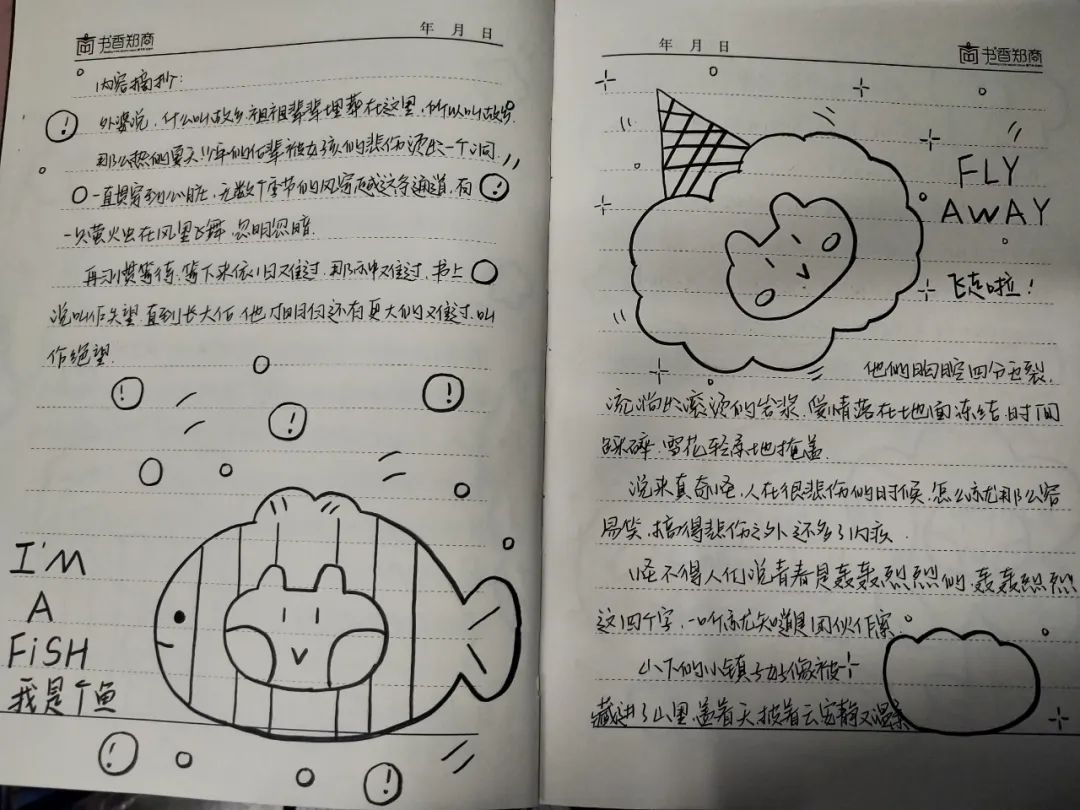 书香郑商
年 月 日
内容摘抄:
外婆说,什么叫故乡,祖祖辈辈埋葬在这里,所以叫故乡.
那么热的夏天,少年的后背被女孩的悲伤烫出一个洞.
一直贯穿到心脏,无数个季节的风穿越这条通道,有
一只萤火虫在风里飞舞,忽明忽暗.
再习惯等待,等下来依旧难过,那种难过,书上
说叫作失望.直到长大后他才明白还有更大的难过,叫
作绝望.
I'M
A
FiSH
我是个鱼
年 月 日
书香郑商
FLY
AWAY
飞走啦!
他们胸腔四分五裂,
流淌出滚烫的岩浆,爱情落在地面冻结,时间
踩碎,雪花轻柔地掩盖.
说来真奇怪,人在很悲伤的时候,怎么就那么容
易笑,搞得悲伤之外还多了内疚.
怪不得人们说青春是轰轰烈烈的,轰轰烈烈
这四个字,一听就知道是团伙作案
山下的小镇好像被
藏进了山里,盖着天,披着云,安静又温柔